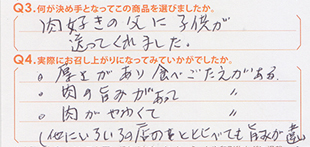 Q3.何が決め手となってこの商品を選びましたか。
肉好きの父に子供が
送ってくれました.
Q4.実際にお召し上がりになってみていかがでしたか。
。厚みがあり食べごたえがある.
。肉の旨みがあって 〃
。肉がやわくて 〃
(他にいろいろの店のをとよせても旨みが違